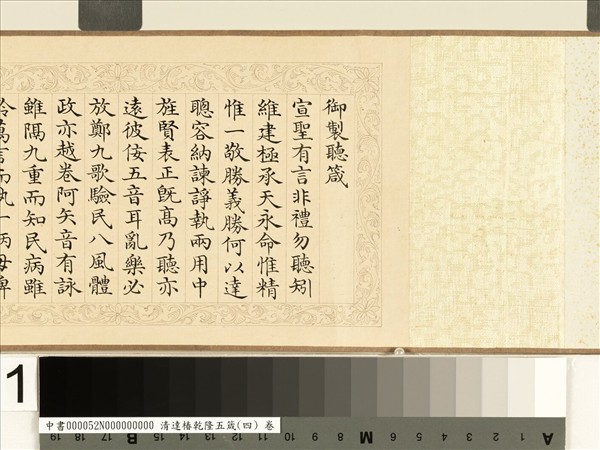 御製聽箴
宣聖有言非禮勿聽矧
維建極承天永命惟精
惟一敬勝義勝何以達
聰容納諫諍執兩用中
旌賢表正旣髙乃聽亦
遠彼佞五音耳亂樂必
放鄭九歌驗民八風體
政亦越卷阿矢音有詠
雖隔九重而知民病雖
萬言而執一
1
中書000052N000000000 清達椿乾隆五箴(四) 卷
19 18 17 B 15 14 13 12 11 10 9 8 M 6 5 4 3 2 1 A